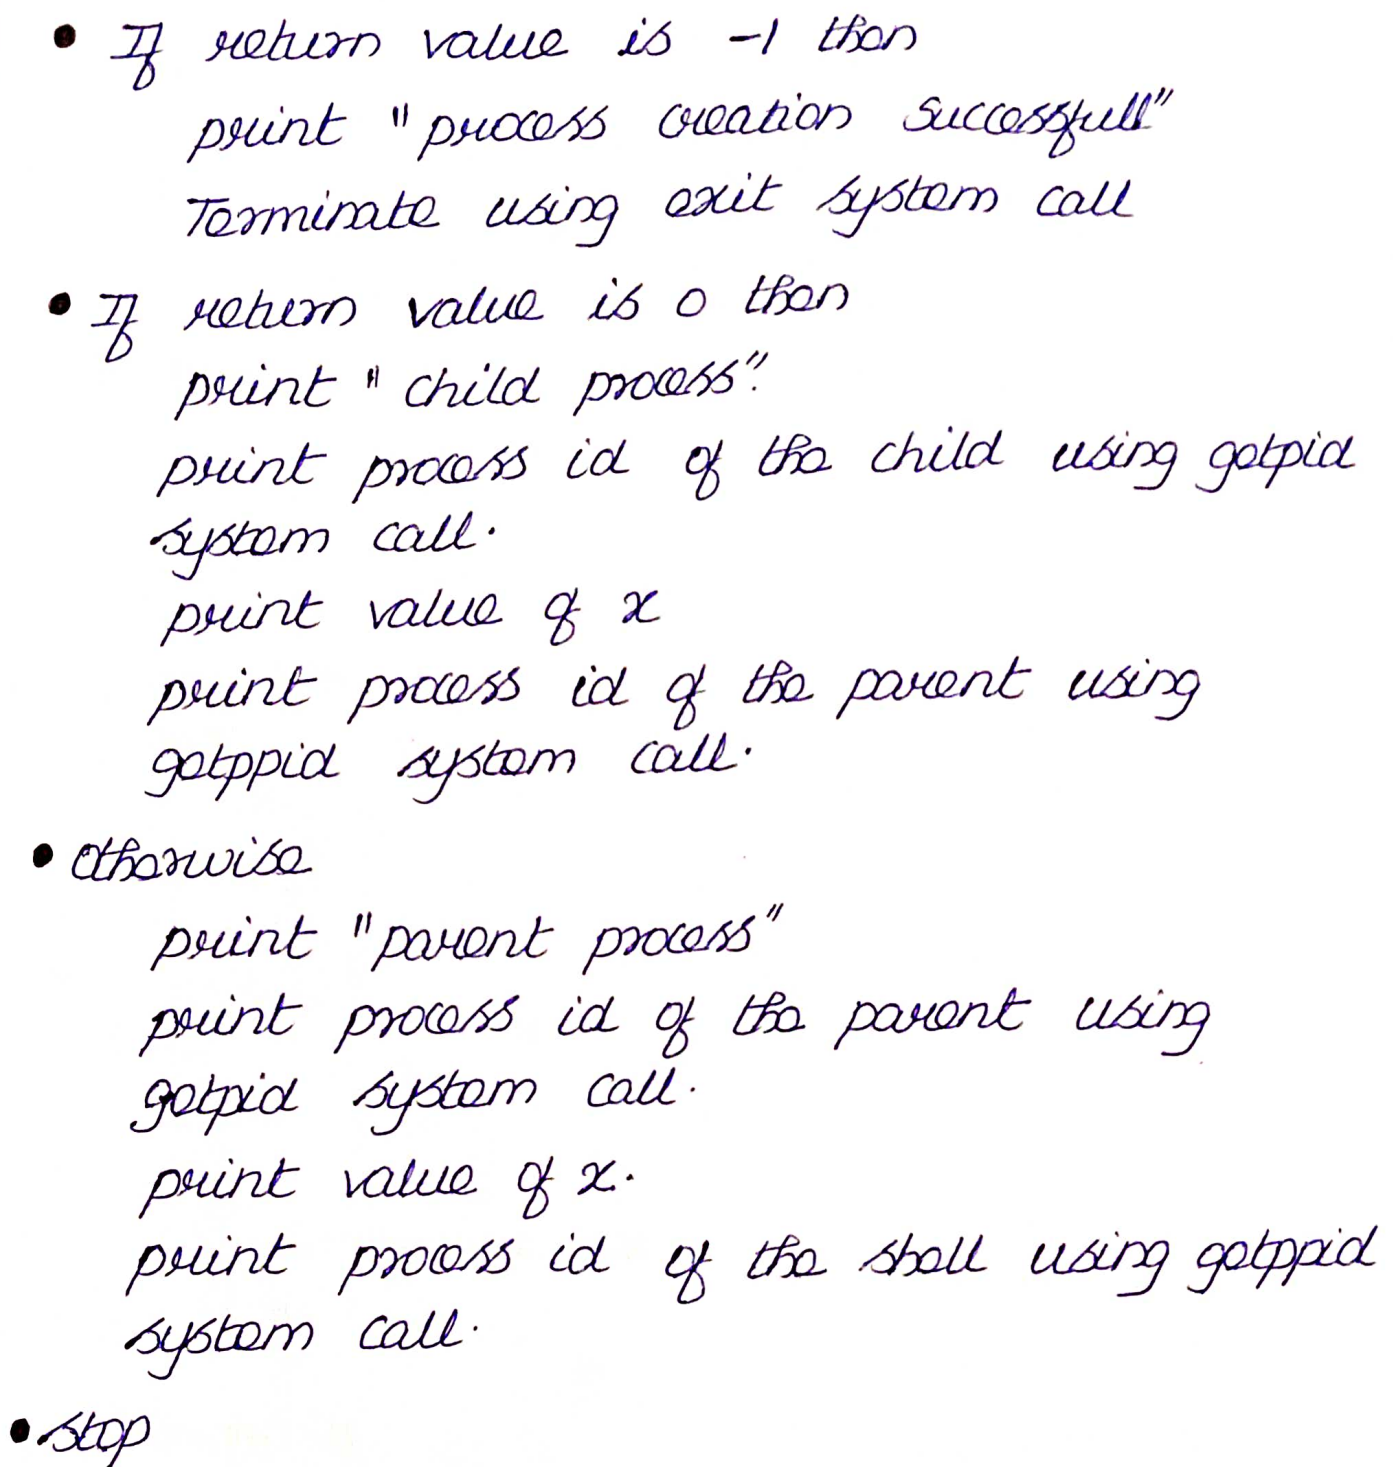 • If return value is -1 then
print "process creation successfull"
Terminate using exit system call
• If return value is 0 then
print "child process".
print process id of the child using getpid
system call.
print value of x
print process id of the parent using
getppid system call.
• Otherwise
print "parent process"
print process id of the parent using
getpid system call.
print value of x.
print process id of the shell using getppid
system call.
• stop